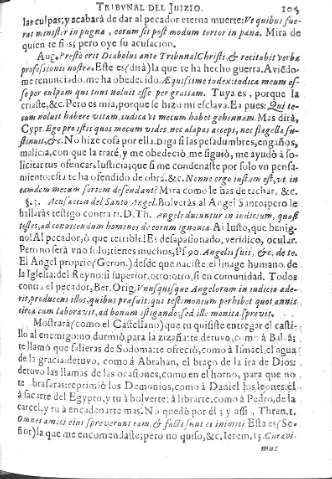 TRIBVNAL DEL JUIZIO. 105
las culpas; y acabará de dar al pecador eterna muerte: Ve quibus fue-
rat minister in pugna, eorum sit post modum tortor in pœna. Mira de
quien te fias; pero oye su acusacion.
Aug. Præsto erit Diabolus ante Tribunal Christi, & recitabit verba
professionis nostræ. Este es (dirà) la que te ha hecho guerra. Aviẽdo-
me renunciado, me ha obedecido. Æquissime iudex: iudica meum es-
se por culpam qui tuus noluit esse per gratiam. Tuya es, porque la
criaste, &c. Pero es mia, porque se hizo mi esclava. Ea pues: Qui te-
cum noluit habere vitam, iudica vt mecum habet gehennam. Mas dirà,
Cypr. Ego pro istis quos mecum vides, nec alapas accepi, nec flagella sus-
tinui, &c. No hize cosa por ella. Diga si las pesadumbres, engaños,
malicia, con que la traté, y me obedeció, me siguió, me ayudó à so-
licitar tus ofensas. Iusticia; que si me condenaste por solo vn pensa-
miento: esta te ha ofendido de obra, &c. Nonne ergo iustum est, vt in
eandem mecum sortem descendant? Mira como le has de tachar, &c.
§. 3. Acusacion del Santo Angel. Bolverás al Angel Santo: pero le
hallarás testigo contra ti. D. Th. Angeli ducuntur in iuditium, quasi
testes, ad convincendum homines de eorum ignavia. Ai Iusto, que benig-
no! Al pecador, ò que terrible! Es desapasionado, veridico, ocular.
Pero no será vno solo: tienes muchos, Ps. 90. Angelis suis, &c. de te.
El Angel proprio (Gerun.) desde que naciste el image humano: de
la Iglesia: del Reyno: si superior, otro: otro, si en comunidad. Todos
contra el pecador, Ber. Orig. Vnusquisque Angelorum in iudicio ade-
rit, producens illos, quibus præfuit: qui testimonium perhibet quot annis
circa eum laboravit, ad bonum istigando, sed ille monita sprevit.
Mostrarà (como el Castellano) que tu quisiste entregar el casti-
llo al enemigo:
te llamó que salieras de Sodoma: te ofreció, como à Ismael, el agua
de la gracia: detuvo, como à Abrahan, el braço de la ira de Dios:
detuvo las llamas de las ocasiones, como en el horno, para que no
te abrasaras: reprimió los Demonios, como à Daniel los leones: él
á sacarte del Egypto, y tu à bolverte: à librarte, como à Pedro, de la
carcel, y tu à encadenarte mas. No quedò por él; y assi, Thren. 1.
Omnes amici eius spreverunt eam, & facti sunt ei inimici. Esta es (Se-
ñor) la que me encomendaste; pero no quiso, &c. Ierem. 15. Curavi-
mus